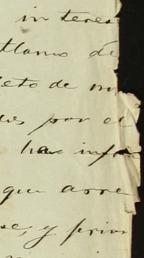 interes
llamo de
eto de mi
des por el
has infor
que arre
se, y priv